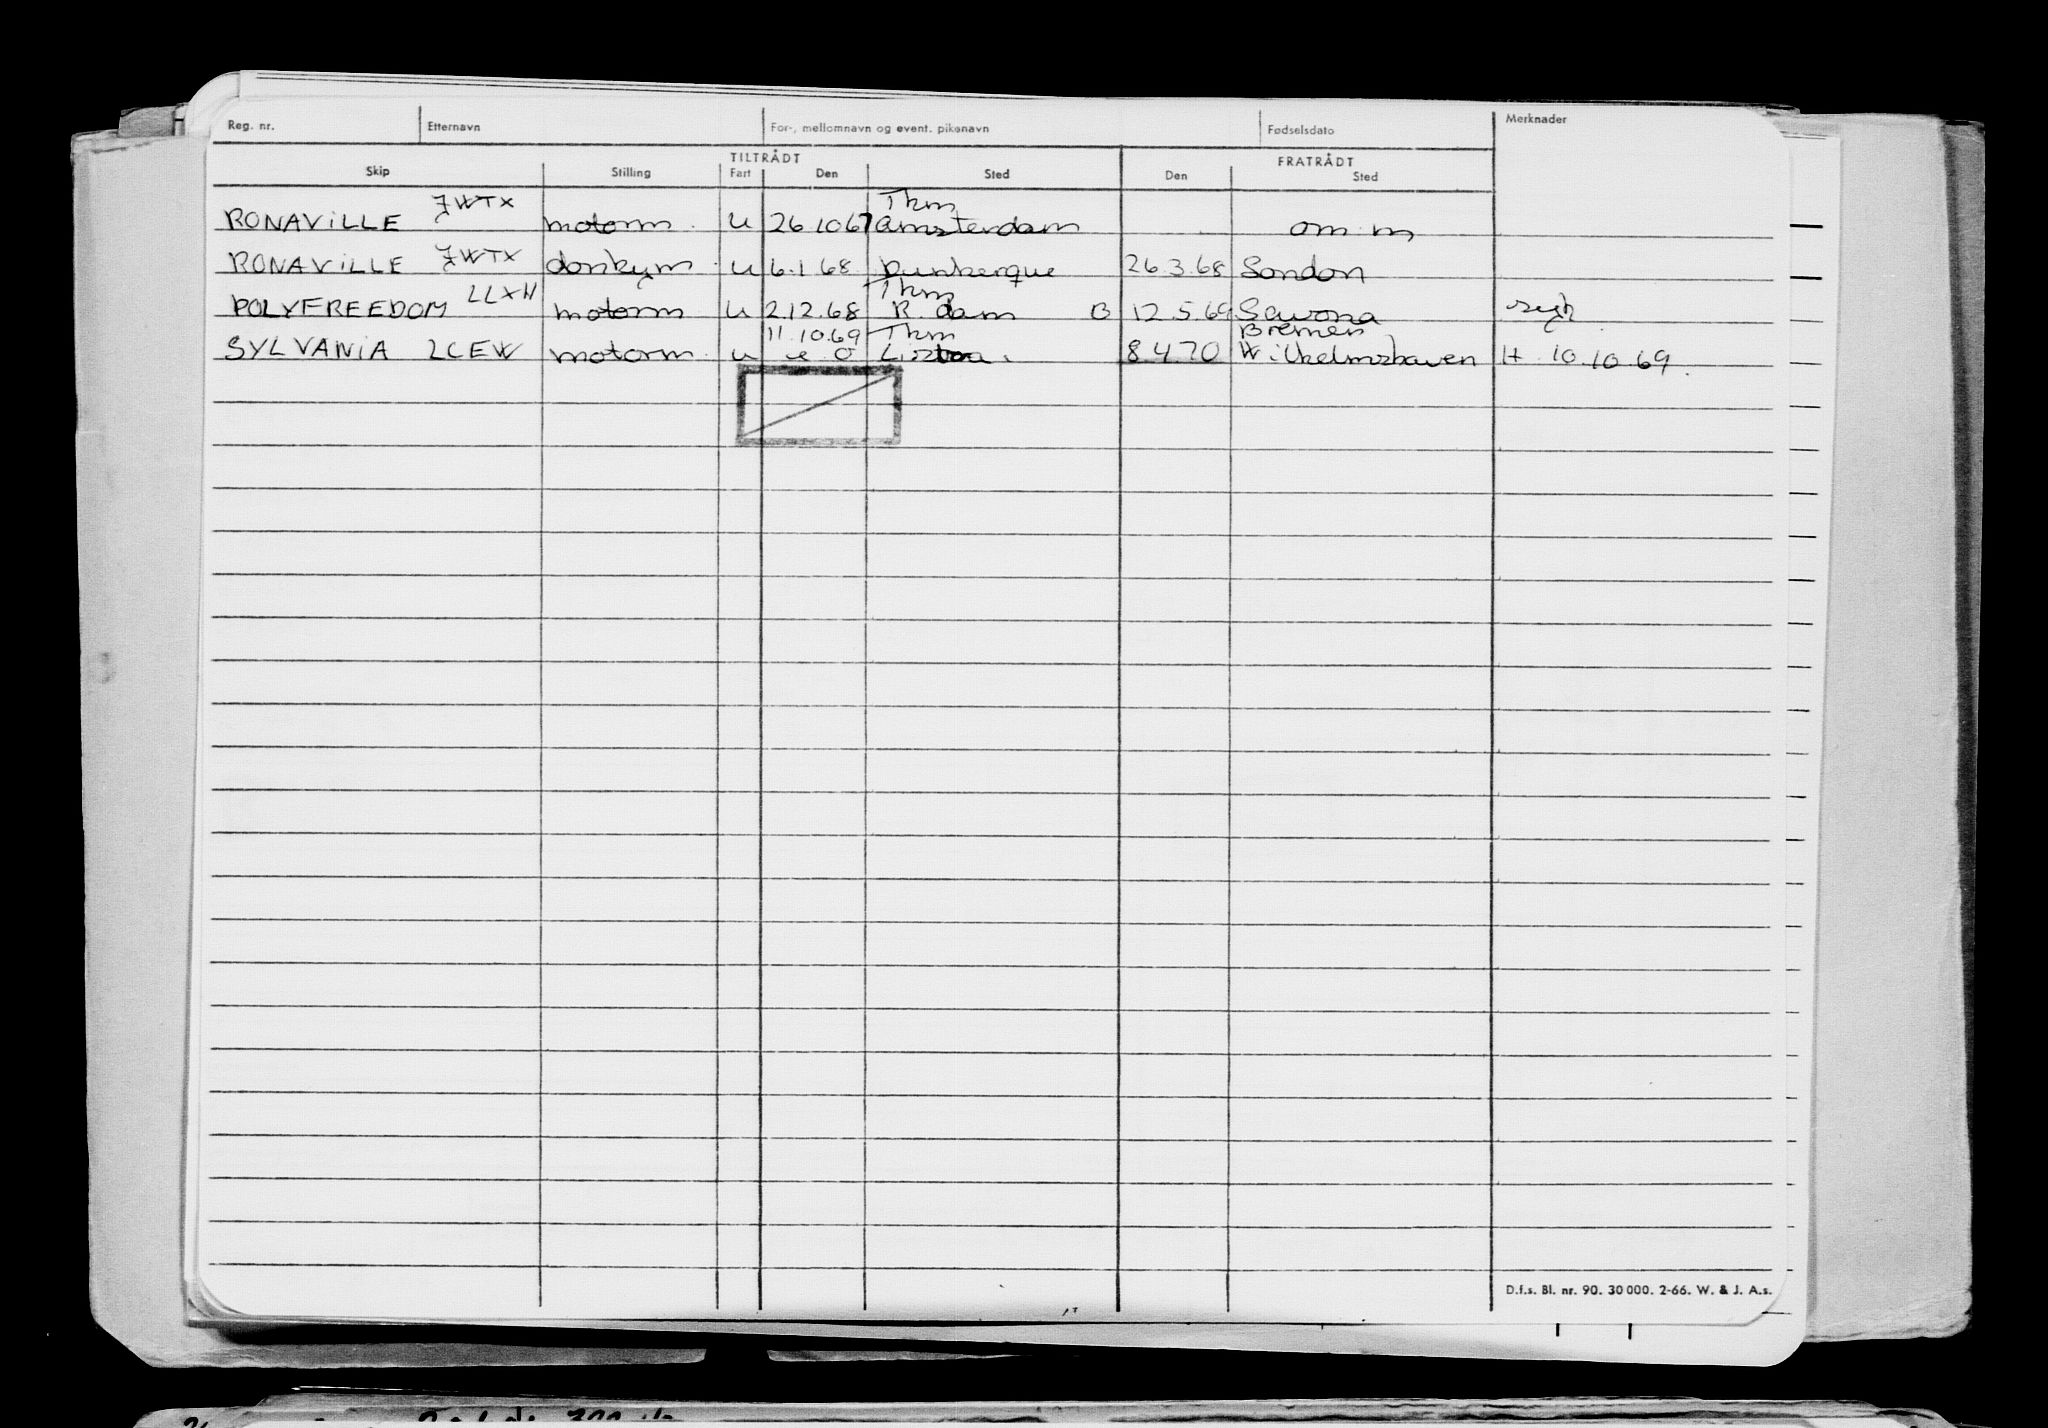 Reg. nr. Etternavn For-, mellomnavn og event. pikenavn Fødselsdato Merknader
TILTRÅDT FRATRÅDT
Skip Stilling Fart Den Sted Den Sted
RONAVILLE JWTX motorm. u 26 10 67 Tkm Amsterdam om m
RONAVILLE JWTX donkym. u 6.1 68 Dunkerque 26.3.68 London
POLYFREEDOM LLXH motorm u 2.12.68 Tkm R.dam B 12.5.69 Savona sygh
11.10.69 Tkm Bremen
SYLVANIA LCEW motorm. u e O Lisboa. 8.4 70 Wilhelmshaven H 10.10.69.
D.f.s. Bl. nr. 90. 30 000. 2-66. W. & J. A.s.